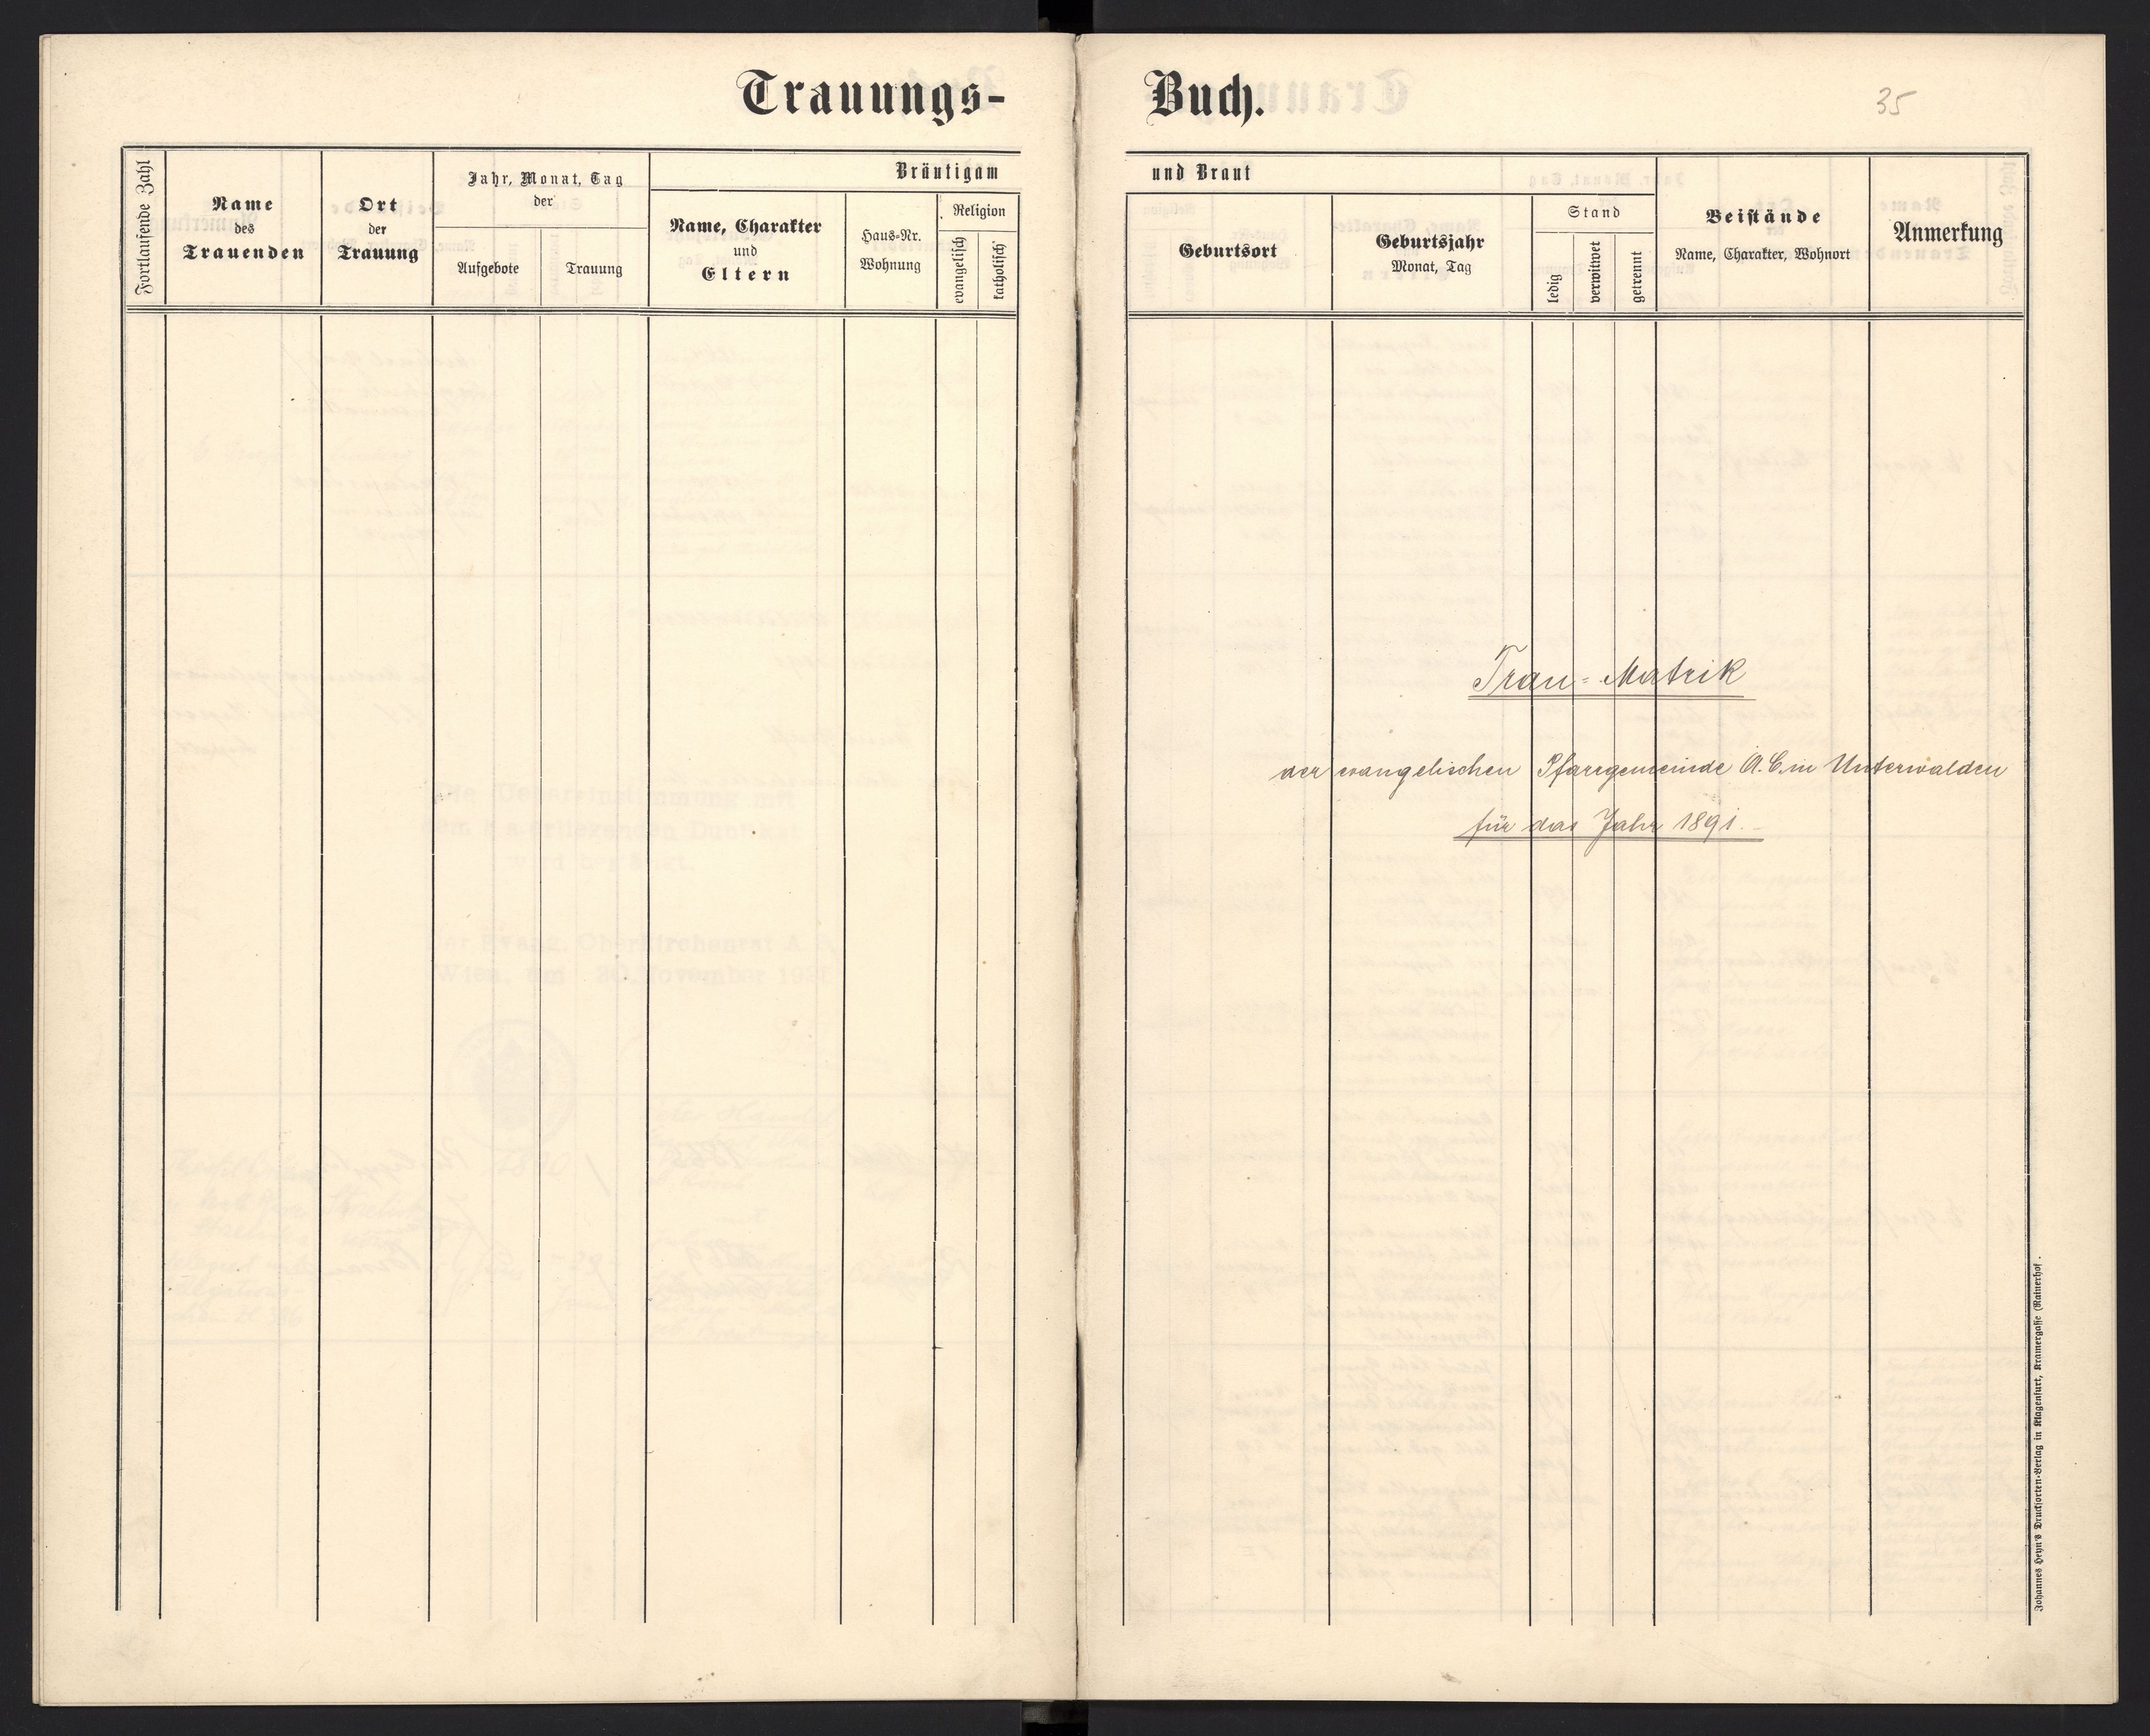 Trauungs-
Buch.
35
Fortlaufende Zahl
Name
des
Trauenden
Ort
der
Trauung
Jahr, Monat, Tag
der
Aufgebote
Trauung
Bräutigam
Name, Charakter
und
Eltern
Haus-Nr.
Wohnung
Religion
evangelisch
katholisch
und Braut
Geburtsort
Geburtsjahr
Monat, Tag
Stand
ledig
verwitwet
getrennt
Beistände
Name, Charakter, Wohnort
Anmerkung
Trau-Matrik
der evangelischen Pfarrgemeinde A.C. in Unterwalden
für das Jahr 1891.
Johannes Heyn's Drucksorten-Verlag in Klagenfurt, Kramergasse (Rainerhof.